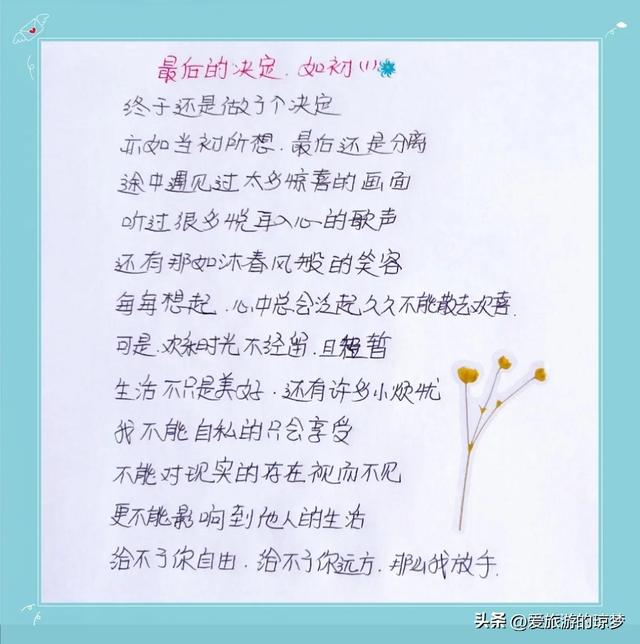 最后的决定.如初(1)
终于还是做了个决定
亦如当初所想.最后还是分离
途中遇见过太多惊喜的画面
听过很多悦耳入心的歌声
还有那如沐春风般的笑容
每每想起.心中总会泛起久久不能散去欢喜.
可是.欢乐时光不经留.且短暂
生活不只是美好.还有许多小烦忧
我不能自私的只会享受
不能对现实的存在视而不见
更不能影响到他人的生活
给不了你自由.给不了你远方.那么我放手.
头条@爱旅游的琼梦